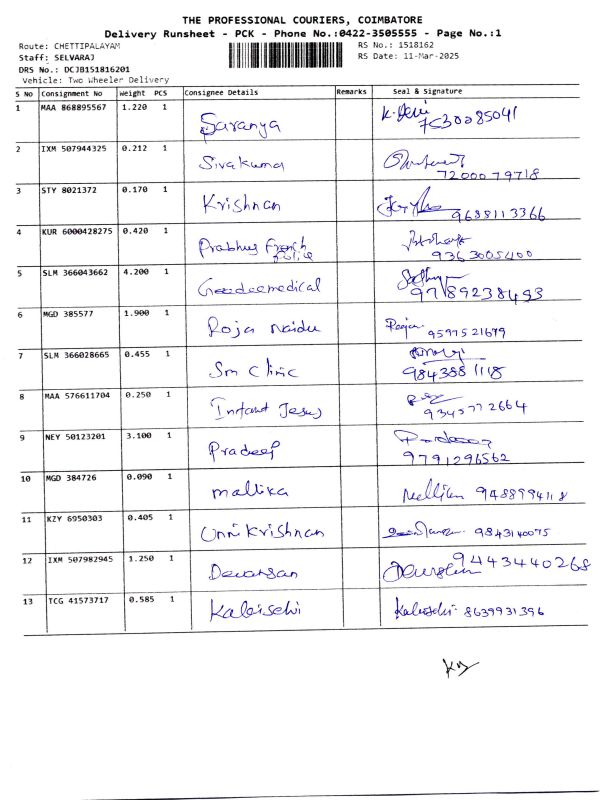 THE PROFESSIONAL COURIERS, COIMBATORE
Delivery Runsheet - PCK - Phone No.:0422-3505555 - Page No.:1
Route: CHETTIPALAYAM RS No.: 1518162
Staff: SELVARAJ RS Date: 11-Mar-2025
DRS No.: DCJB151816201
Vehicle: Two Wheeler Delivery
S No Consignment No Weight PCS Consignee Details Remarks Seal & Signature
1 MAA 868895567 1.220 1 Saranya K. Devi
7530085041
2 IXM 507944325 0.212 1 Sivakumar
7200079718
3 STY 8021372 0.170 1 Krishnan 9688113366
4 KUR 6000428275 0.420 1 Prabhus French
9363005400
5 SLM 366043662 4.200 1 Geedeemedical
9789238493
6 MGD 385577 1.900 1 Roja Naidu 9597521679
7 SLM 366028665 0.455 1 Sm Clinic
9843881118
8 MAA 576611704 0.250 1 Infant Jesus
9345772664
9 NEY 50123201 3.100 1 Pradeep
9791296562
10 MGD 384726 0.090 1 mallika 9488994118
11 KZY 6950303 0.405 1 Unnikrishnan 9843140075
12 IXM 507982945 1.250 1 Devarsan 9443440268
13 TCG 41573717 0.585 1 Kalaiselvi Kalaiselvi 8639931396